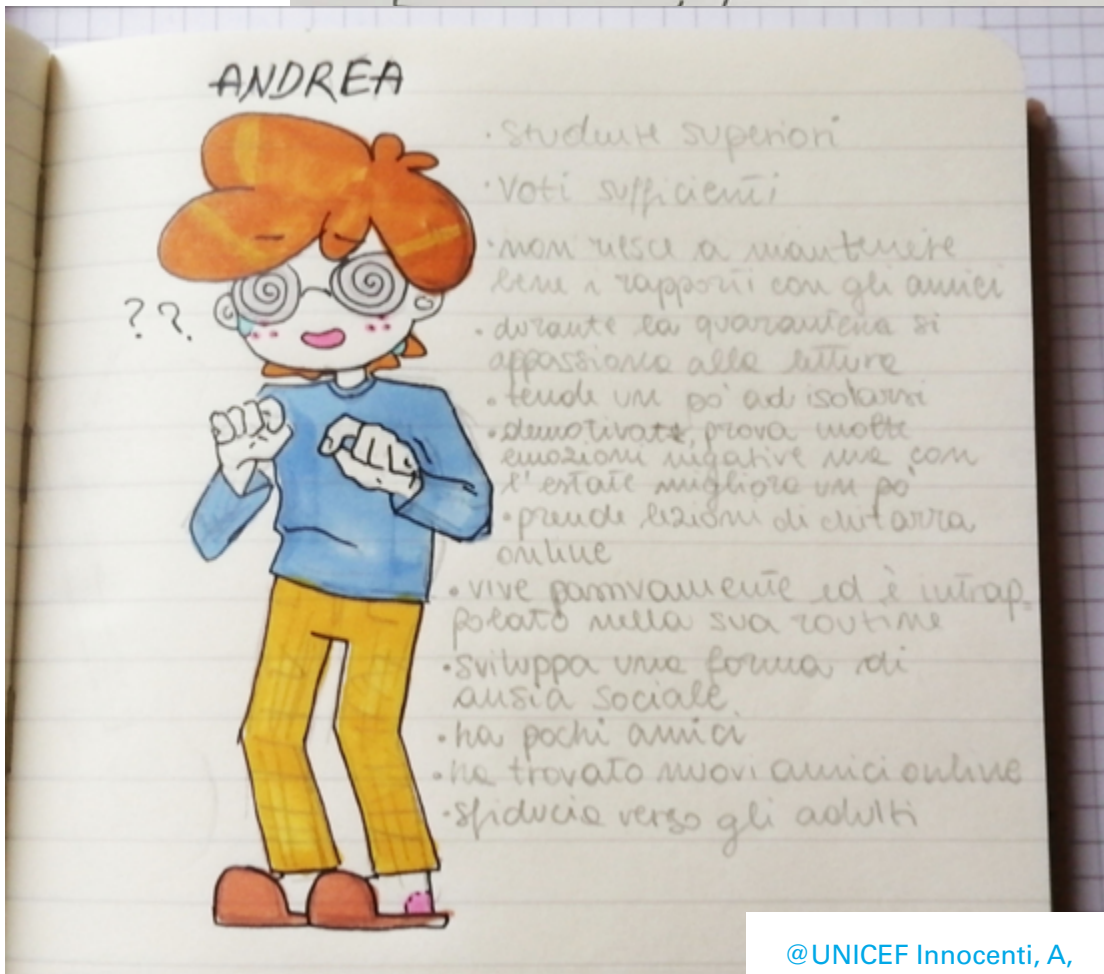 ANDREA
• Studente superiori
• Voti sufficienti
• non riesce a mantenere
bene i rapporti con gli amici
• durante la quarantena si
appassiona alla lettura
• tende un po' ad isolarsi
• demotivato, prova molte
emozioni negative ma con
l'estate migliora un pò
• prende lezioni di chitarra
online
• vive passivamente ed è intrap-
polato nella sua routine
• sviluppa una forma di
ansia sociale
• ha pochi amici
• ha trovato nuovi amici online
• sfiducia verso gli adulti
? ?
@UNICEF Innocenti, A,